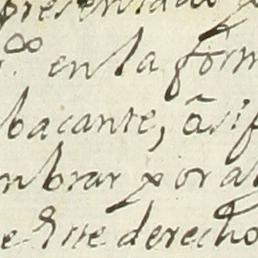 presentado
en la form
bacante, âsi f
mbrar por al
e este derecho